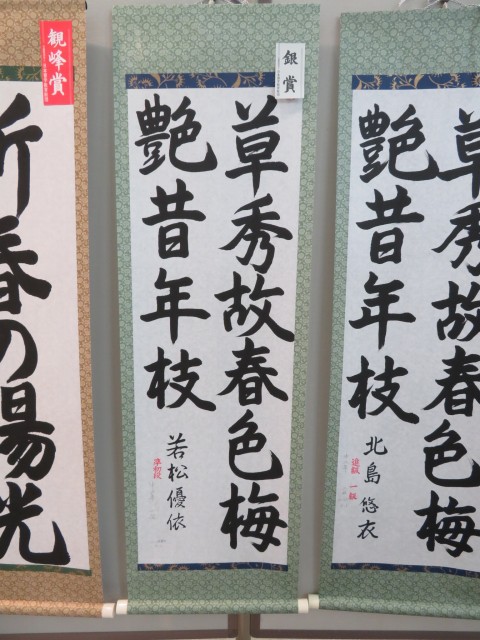 草秀故春色梅
艶昔年枝
北島悠衣
進級 一級
銀賞
草秀故春色梅
艶昔年枝
若松優依
準初段
観峰賞
新春の陽光